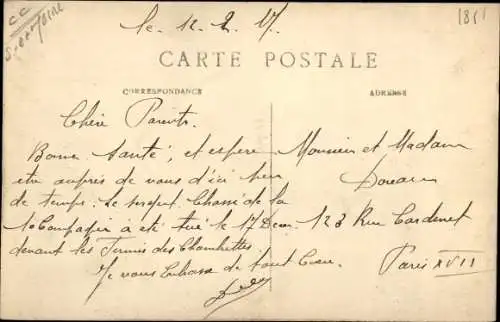 CC
S-et-Loire
le 12. 2. 17.
1811
CARTE POSTALE
CORRESPONDANCE
ADRESSE
Chère Parents.
Bonne Santé, et espère
être auprès de vous d'ici peu
de temps. le sergent Chassé de la
1e Compagnie a été tué le 17 Décem
devant les Chambrettes
Je vous Embrasse de tout Cœur.
Monsieur et Madame
123 Rue Cardinet
Paris XVII